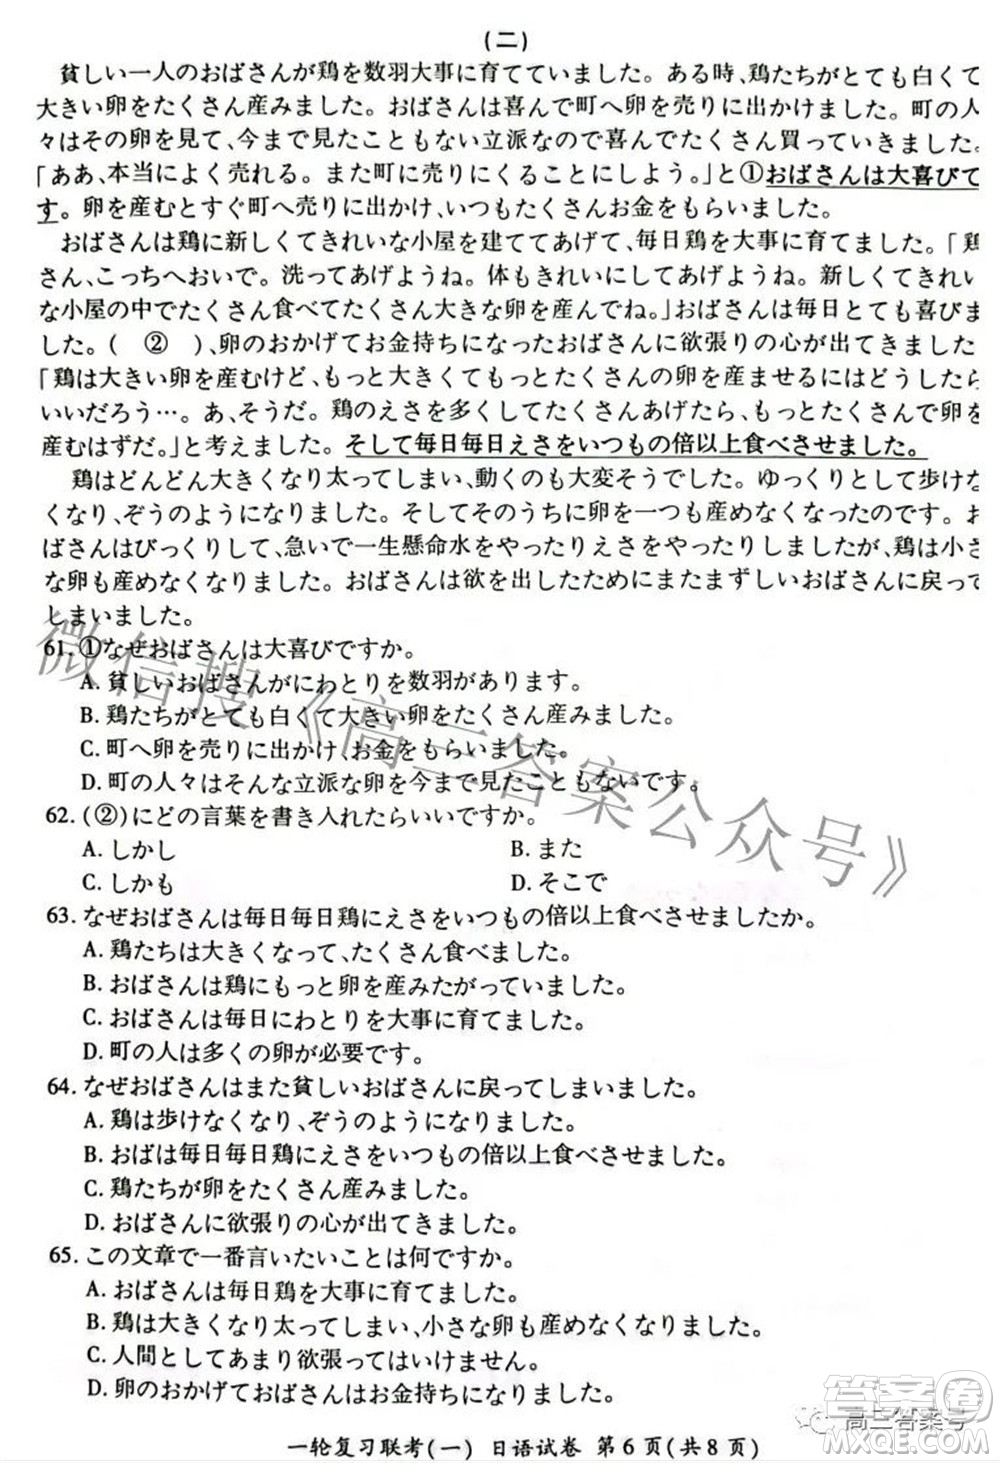 (二)
貧しい一人のおばさんが鶏を数羽大事に育てていました。ある時、鶏たちがとても白くて
大きい卵をたくさん産みました。おばさんは喜んで町へ卵を売りに出かけました。町の人
々はその卵を見て、今まで見たこともない立派なので喜んでたくさん買っていきました。
「ああ、本当によく売れる。また町に売りにくることにしよう。」と①おばさんは大喜びで
す。卵を産むとすぐ町へ売りに出かけ、いつもたくさんお金をもらいました。
おばさんは鶏に新しくてきれいな小屋を建ててあげて、毎日鶏を大事に育てました。「鶏
さん、こっちへおいで。洗ってあげようね。体もきれいにしてあげようね。新しくてきれい
な小屋の中でたくさん食べてたくさん大きな卵を産んでね。」おばさんは毎日とても喜びま
した。( ② )、卵のおかげでお金持ちになったおばさんに欲張りの心が出てきました
「鶏は大きい卵を産むけど、もっと大きくてもっとたくさんの卵を産ませるにはどうしたら
いいだろう…。あ、そうだ。鶏のえさを多くしてたくさんあげたら、もっとたくさんの卵を
産むはずだ。」と考えました。そして毎日毎日えさをいつもの倍以上食べさせました。
鶏はどんどん大きくなり太ってしまい、動くのも大変そうでした。ゆっくりとしか歩けな
くなり、ぞうのようになりました。そしてそのうちに卵を一つも産めなくなったのです。お
ばさんはびっくりして、急いで一生懸命水をやったりえさをやったりしましたが、鶏は小さ
な卵も産めなくなりました。おばさんは欲を出したためにまたまずしいおばさんに戻って
しまいました。
61. ①なぜおばさんは大喜びですか。
A. 貧しいおばさんがにわとりを数羽があります。
B. 鶏たちがとても白くて大きい卵をたくさん産みました。
C. 町へ卵を売りに出かけ、お金をもらいました。
D. 町の人々はそんな立派な卵を今まで見たこともないです。
62. (②)にどの言葉を書き入れたらいいですか。
A. しかし B. また
C. しかも D. そこで
63. なぜおばさんは毎日毎日鶏にえさをいつもの倍以上食べさせましたか。
A. 鶏たちは大きくなって、たくさん食べました。
B. おばさんは鶏にもっと卵を産みたがっていました。
C. おばさんは毎日にわとりを大事に育てました。
D. 町の人は多くの卵が必要です。
64. なぜおばさんはまた貧しいおばさんに戻ってしまいました。
A. 鶏は歩けなくなり、ぞうのようになりました。
B. おばは毎日毎日鶏にえさをいつもの倍以上食べさせました。
C. 鶏たちが卵をたくさん産みました。
D. おばさんに欲張りの心が出てきました。
65. この文章で一番言いたいことは何ですか。
A. おばさんは毎日鶏を大事に育てました。
B. 鶏は大きくなり太ってしまい、小さな卵も産めなくなりました。
C. 人間としてあまり欲張ってはいけません。
D. 卵のおかげでおばさんはお金持ちになりました。
一轮复习联考(一) 日语试卷 第6页(共8页)
微信搜《高三答案公众号》
高三答案号
答案圈
MXQE.COM